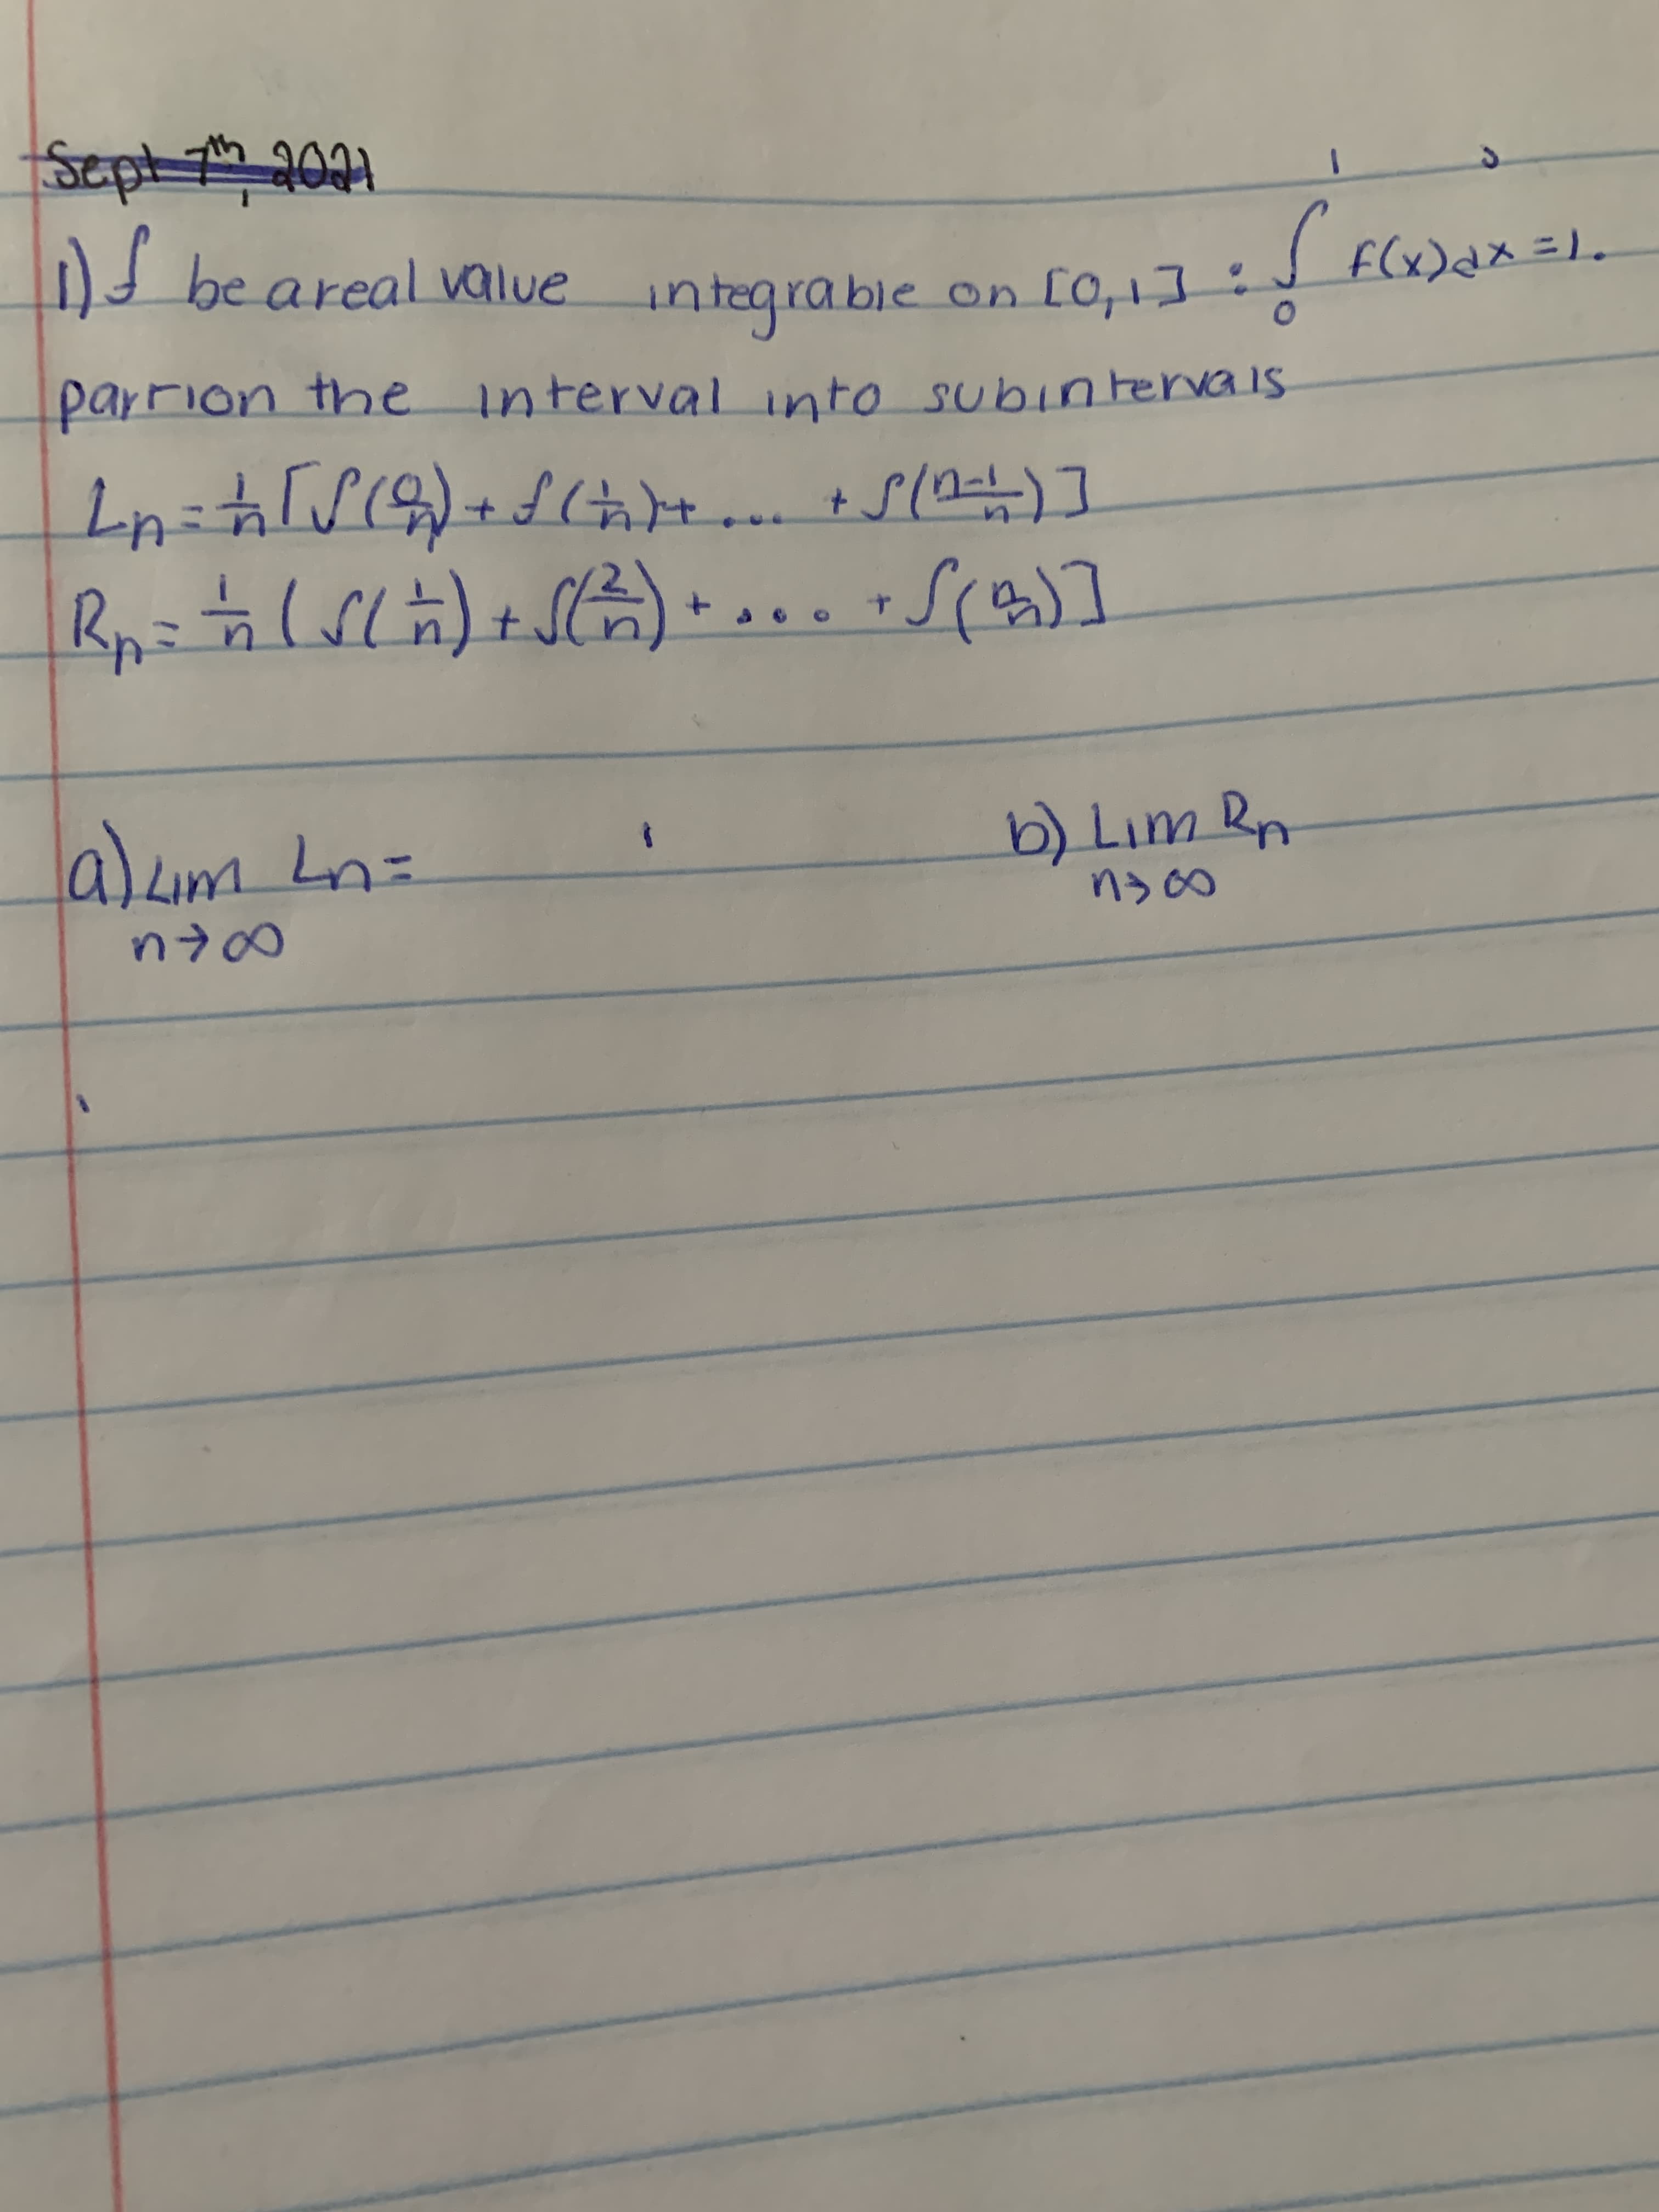 Sept 7th, 2021
1) f be a real value integrable on [0,1] : ∫₀¹ f(x)dx = 1.
parrion the interval into subintervals
Ln = 1/n [f(0/n) + f(1/n) + ... + f(n-1/n)]
Rn = 1/n (f(1/n) + f(2/n) + ... + f(n/n)]
a) Lim n→∞ Ln = b) Lim n→∞ Rn